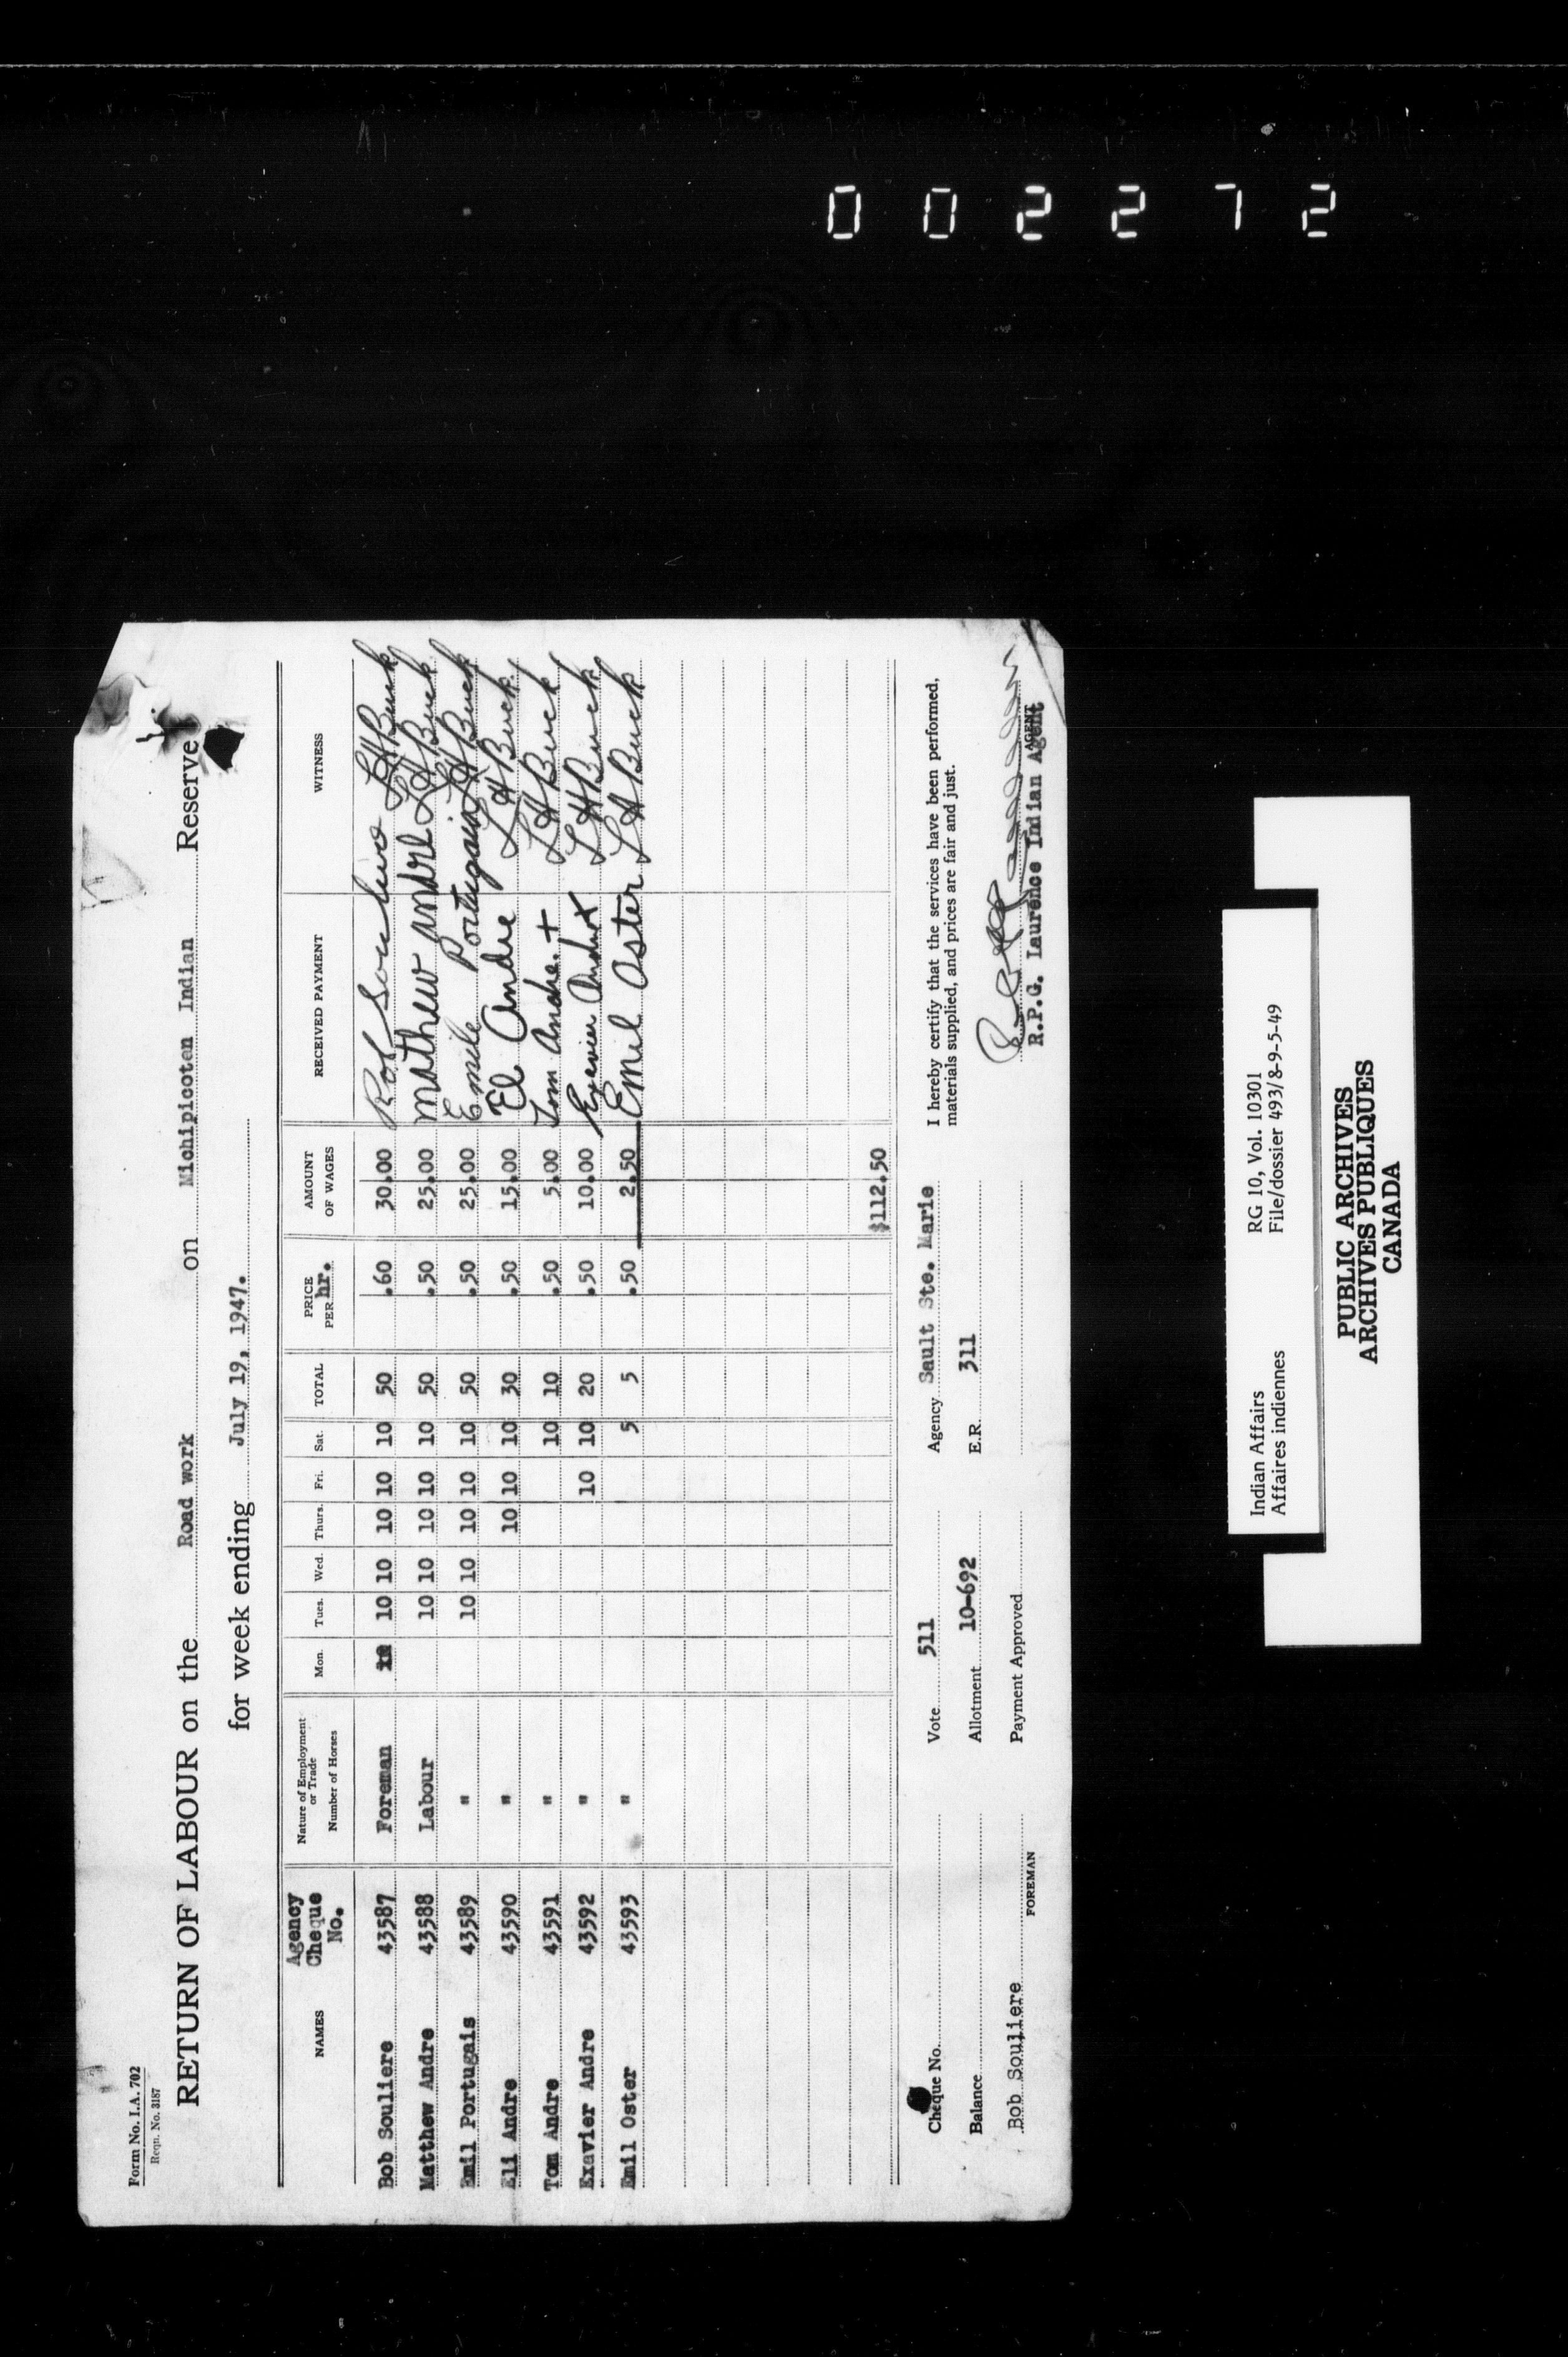 002272
Form No. I.A. 702
Reqn. No. 3187
RETURN OF LABOUR on the Road work on Michipicoten Indian Reserve
for week ending July 19, 1947.
NAMES Agency Cheque No. Nature of Employment or Trade Number of Horses Mon. Tues. Wed. Thurs. Fri. Sat. TOTAL PRICE PER hr. AMOUNT OF WAGES RECEIVED PAYMENT WITNESS
Bob Souliere 43587 Foreman 10 10 10 10 10 50 .60 30.00 Rob Souliere L H Buck
Matthew Andre 43588 Labour 10 10 10 10 10 50 .50 25.00 mathew andre L H Buck
Emil Portugais 43589 " 10 10 10 10 10 50 .50 25.00 Emile Portugais L H Buck
Eli Andre 43590 " 10 10 10 30 .50 15.00 Eli Andre L H Buck
Tom Andre 43591 " 10 10 .50 5.00 Tom Andre + L H Buck
Exavier Andre 43592 " 10 10 20 .50 10.00 Exavier Andre X L H Buck
Emil Oster 43593 " 5 5 .50 2.50 Emil Oster L H Buck
$112.50
Cheque No. Vote 511 Agency Sault Ste. Marie I hereby certify that the services have been performed,
materials supplied, and prices are fair and just.
Balance Allotment 10-692 E.R. 311
Bob Souliere Payment Approved
FOREMAN AGENT
R.P.G. Laurence Indian Agent
Indian Affairs RG 10, Vol. 10301
Affaires indiennes File/dossier 493/8-9-5-49
PUBLIC ARCHIVES
ARCHIVES PUBLIQUES
CANADA